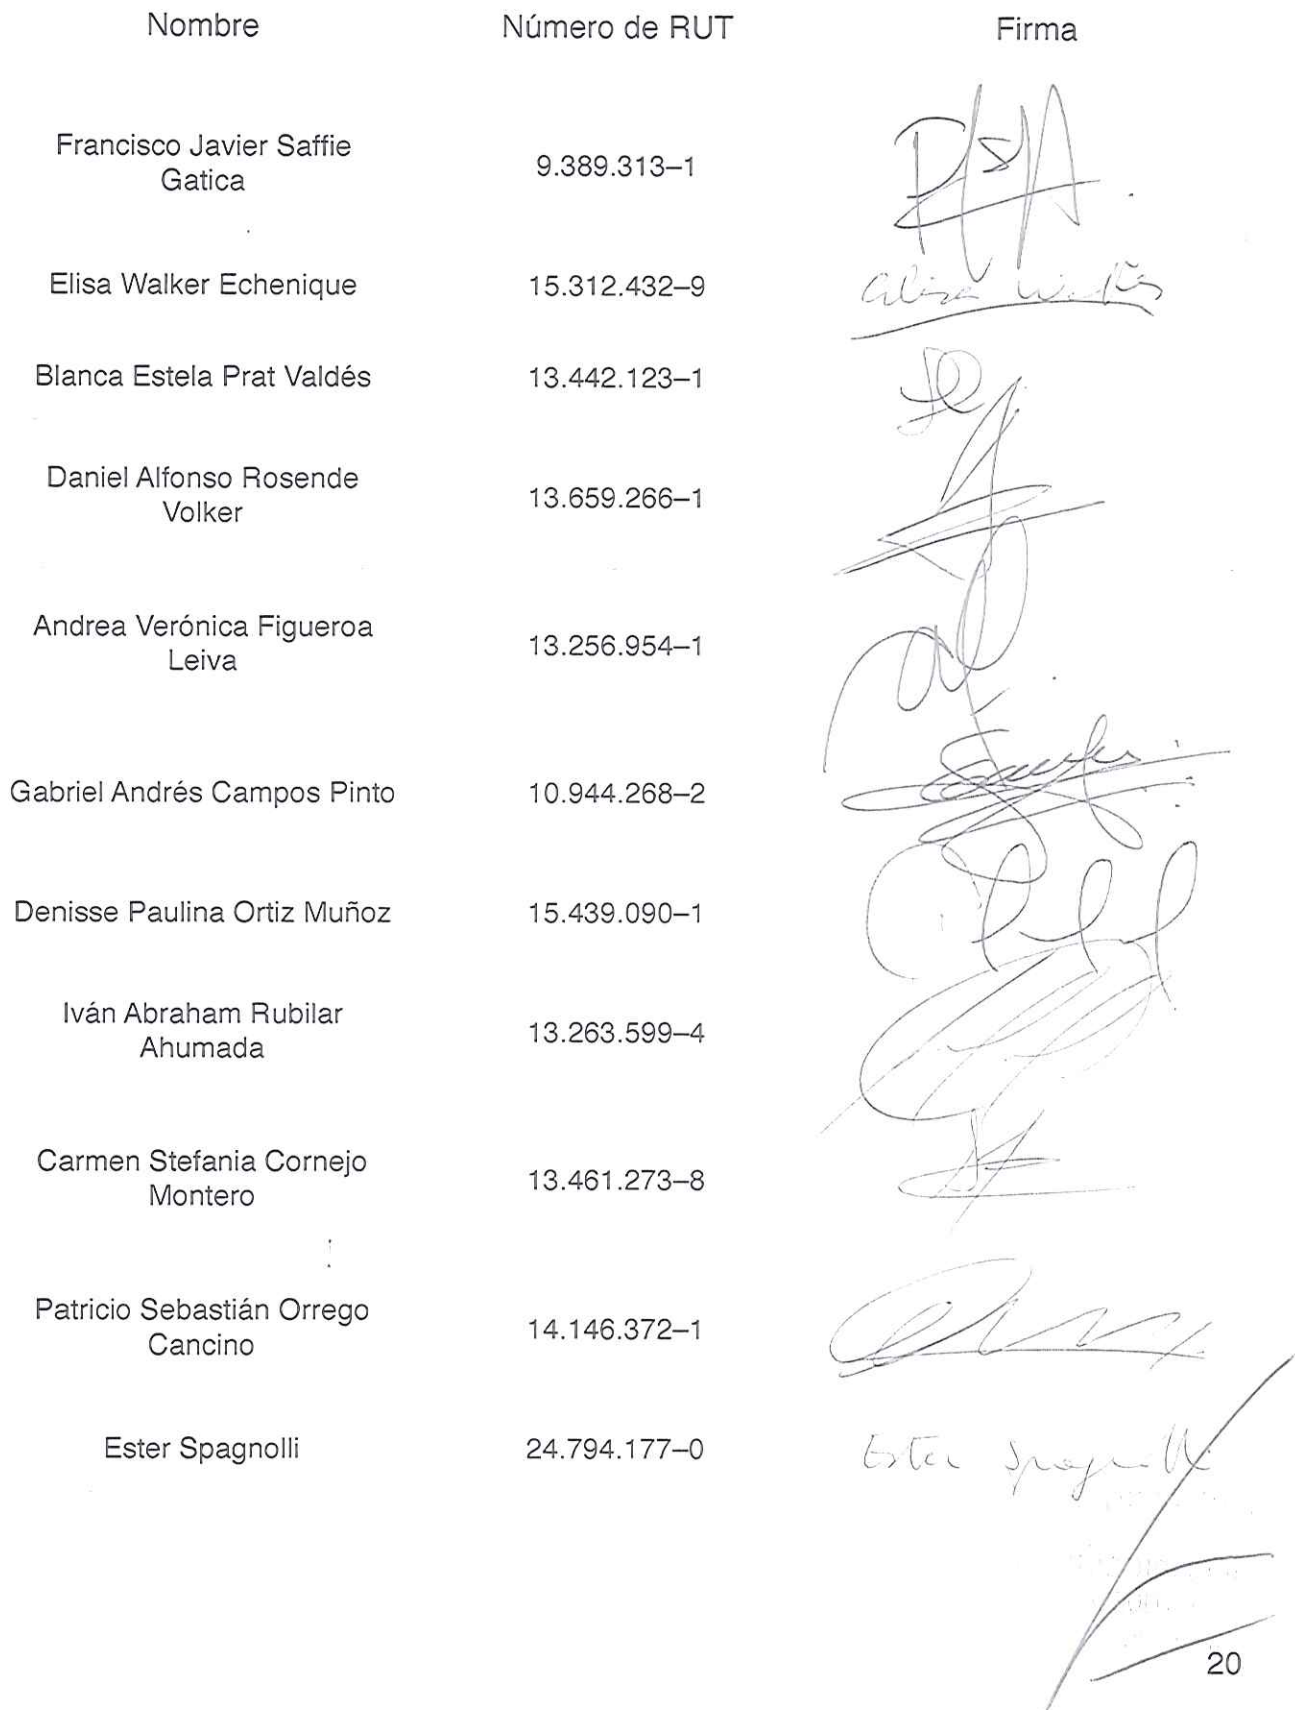 Nombre Número de RUT Firma
Francisco Javier Saffie
Gatica
9.389.313–1
Elisa Walker Echenique 15.312.432–9
Elisa Walker
Blanca Estela Prat Valdés 13.442.123–1
Daniel Alfonso Rosende
Volker
13.659.266–1
Andrea Verónica Figueroa
Leiva
13.256.954–1
Gabriel Andrés Campos Pinto 10.944.268–2
Denisse Paulina Ortiz Muñoz 15.439.090–1
Iván Abraham Rubilar
Ahumada
13.263.599–4
Carmen Stefania Cornejo
Montero
13.461.273–8
Patricio Sebastián Orrego
Cancino
14.146.372–1
Ester Spagnolli 24.794.177–0 Ester Spagnolli
20